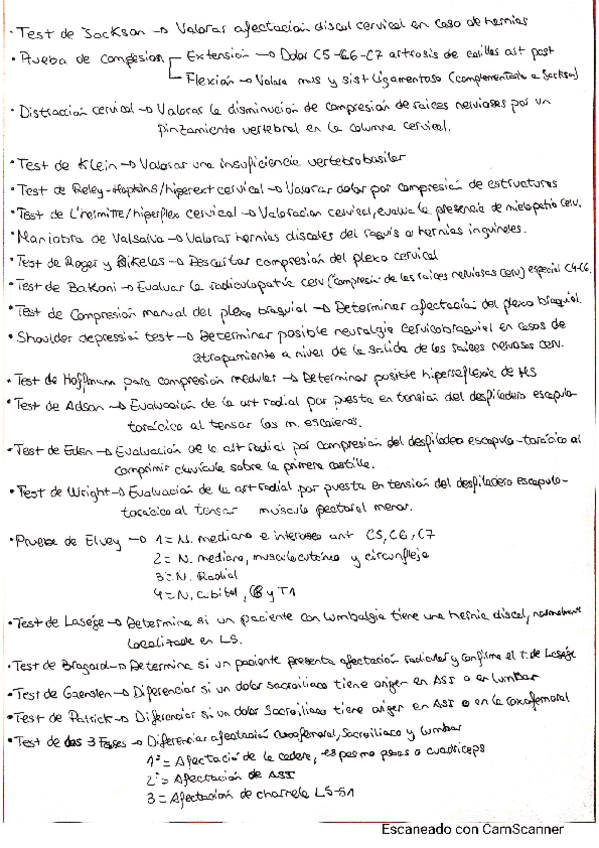 · Test de Jackson → Valorar afectación discal cervical en caso de hernias
· Prueba de compresión Extensión → Dolor C5-C6-C7 artrosis de carillas art post
Flexión → Valora mus y sist ligamentoso (complementario a Jackson)
· Distracción cervical → Valorar la disminución de compresión de raices nerviosas por un
pinzamiento vertebral en la columna cervical.
· Test de Klein → Valorar una insuficiencia vertebrobasilar
· Test de Reley-Hopkins/hiperext cervical → Valorar dolor por compresión de estructuras
· Test de L'hermitte/hiperflex cervical → Valoración cervical, evalua la presencia de mielopatía cerv.
· Maniobra de Valsalva → Valorar hernias discales del raquis o hernias inguinales.
· Test de Roger y Bikeles → Descartar compresión del plexo cervical
· Test de Bakoni → Evaluar la radiculopatía cerv (compresión de las raices nerviosas cerv) especial C4-C6.
· Test de Compresión manual del plexo braquial → Determinar afectación del plexo braquial.
· Shoulder depression test → Determinar posible neuralgia cervicobraquial en casos de
atrapamiento a nivel de la salida de las raices nerviosas cerv.
· Test de Hoffmann para compresión medular → Determinar posible hiperreflexia de MS
· Test de Adson → Evaluación de la art radial por puesta en tensión del desfiladero escapulo-
torácico al tensar los m. escalenos.
· Test de Eden → Evaluación de la art radial por compresión del desfiladero escapulo-torácico al
comprimir clavícula sobre la primera costilla.
· Test de Wright → Evaluación de la art radial por puesta en tensión del desfiladero escapulo-
torácico al tensar musculo pectoral menor.
· Prueba de Elvey → 1 = N. mediano e interoseo ant C5, C6, C7
2 = N. mediano, musculocutáneo y circunflejo
3 = N. Radial
4 = N. cubital, C8 y T1
· Test de Lasége → Determina si un paciente con lumbalgia tiene una hernia discal, normalmente
localizada en LS.
· Test de Bragard → Determina si un paciente presenta afectación radicular y confirma el T. de Laségue
· Test de Gaenslen → Diferenciar si un dolor sacroiliaco tiene origen en ASI o en lumbar
· Test de Patrick → Diferenciar si un dolor Sacroiliaco tiene origen en ASI o en la coxofemoral
· Test de los 3 Fases → Diferenciar afectación coxofemoral, Sacroiliaco y lumbar
1ª = Afectación de la cadera, espasmo psoas o cuadriceps
2ª = Afectación de ASI
3 = Afectación de charnela L5-S1
Escaneado con CamScanner